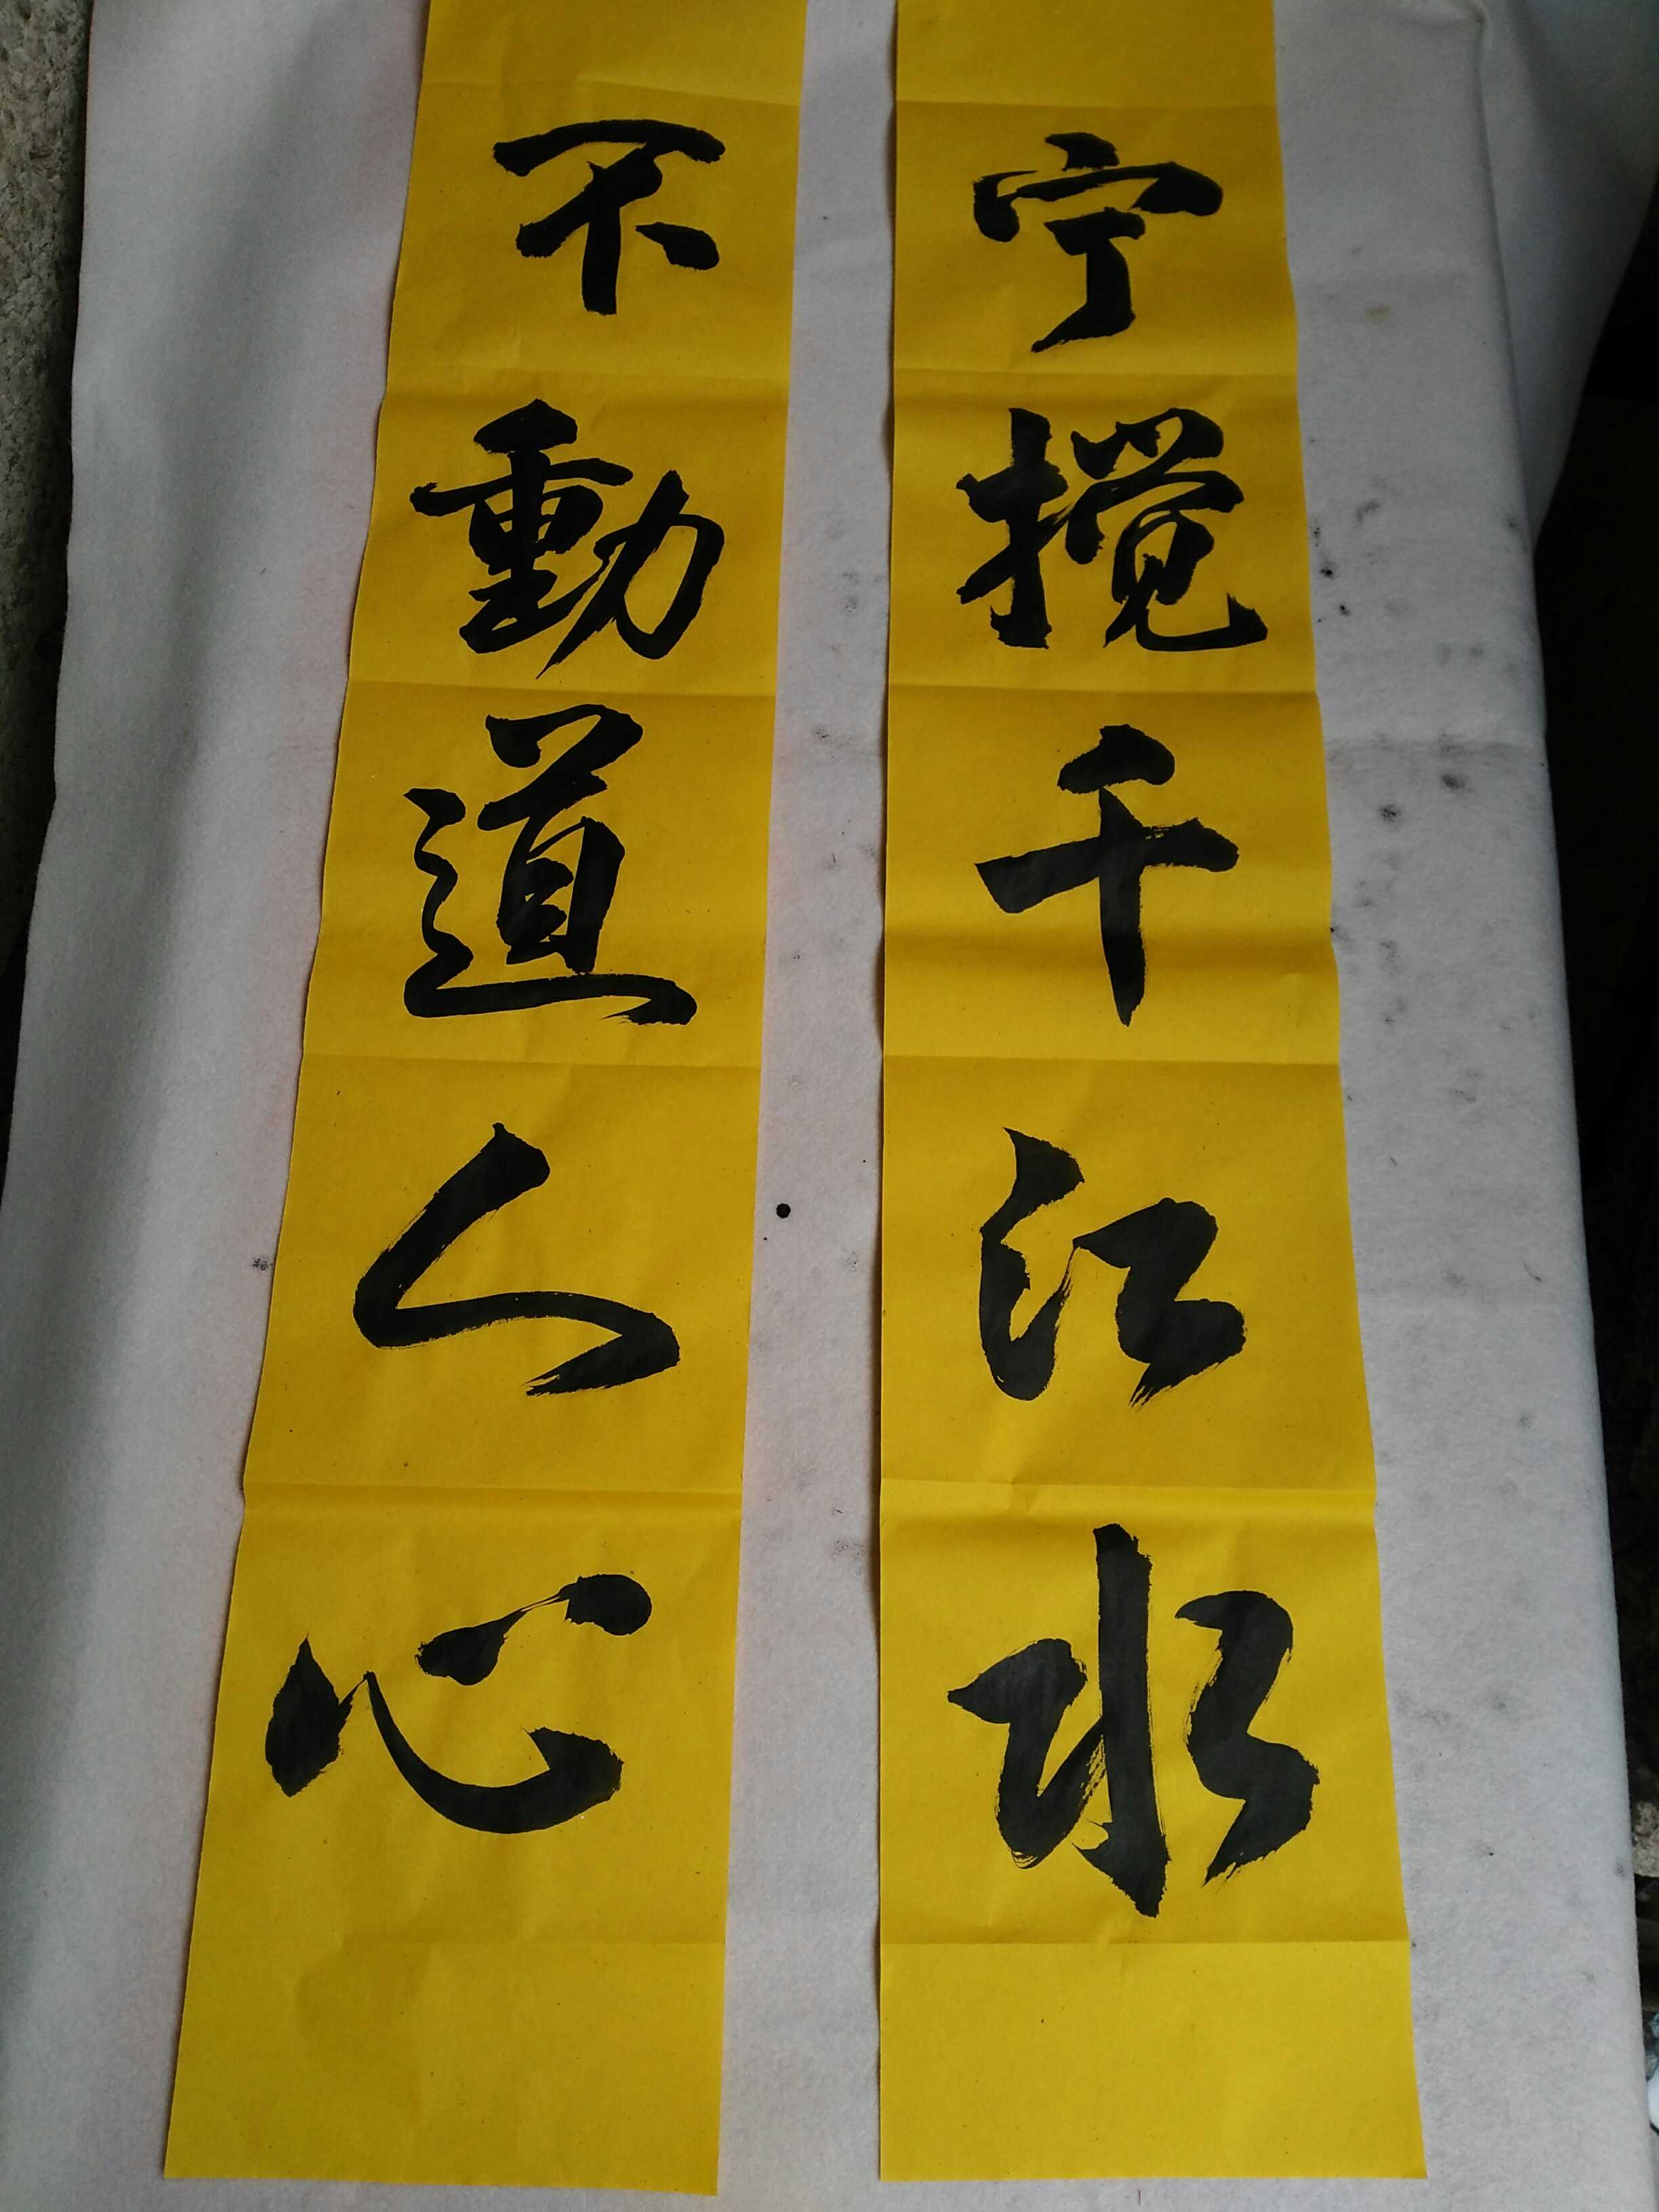 宁搅千江水
不動道人心